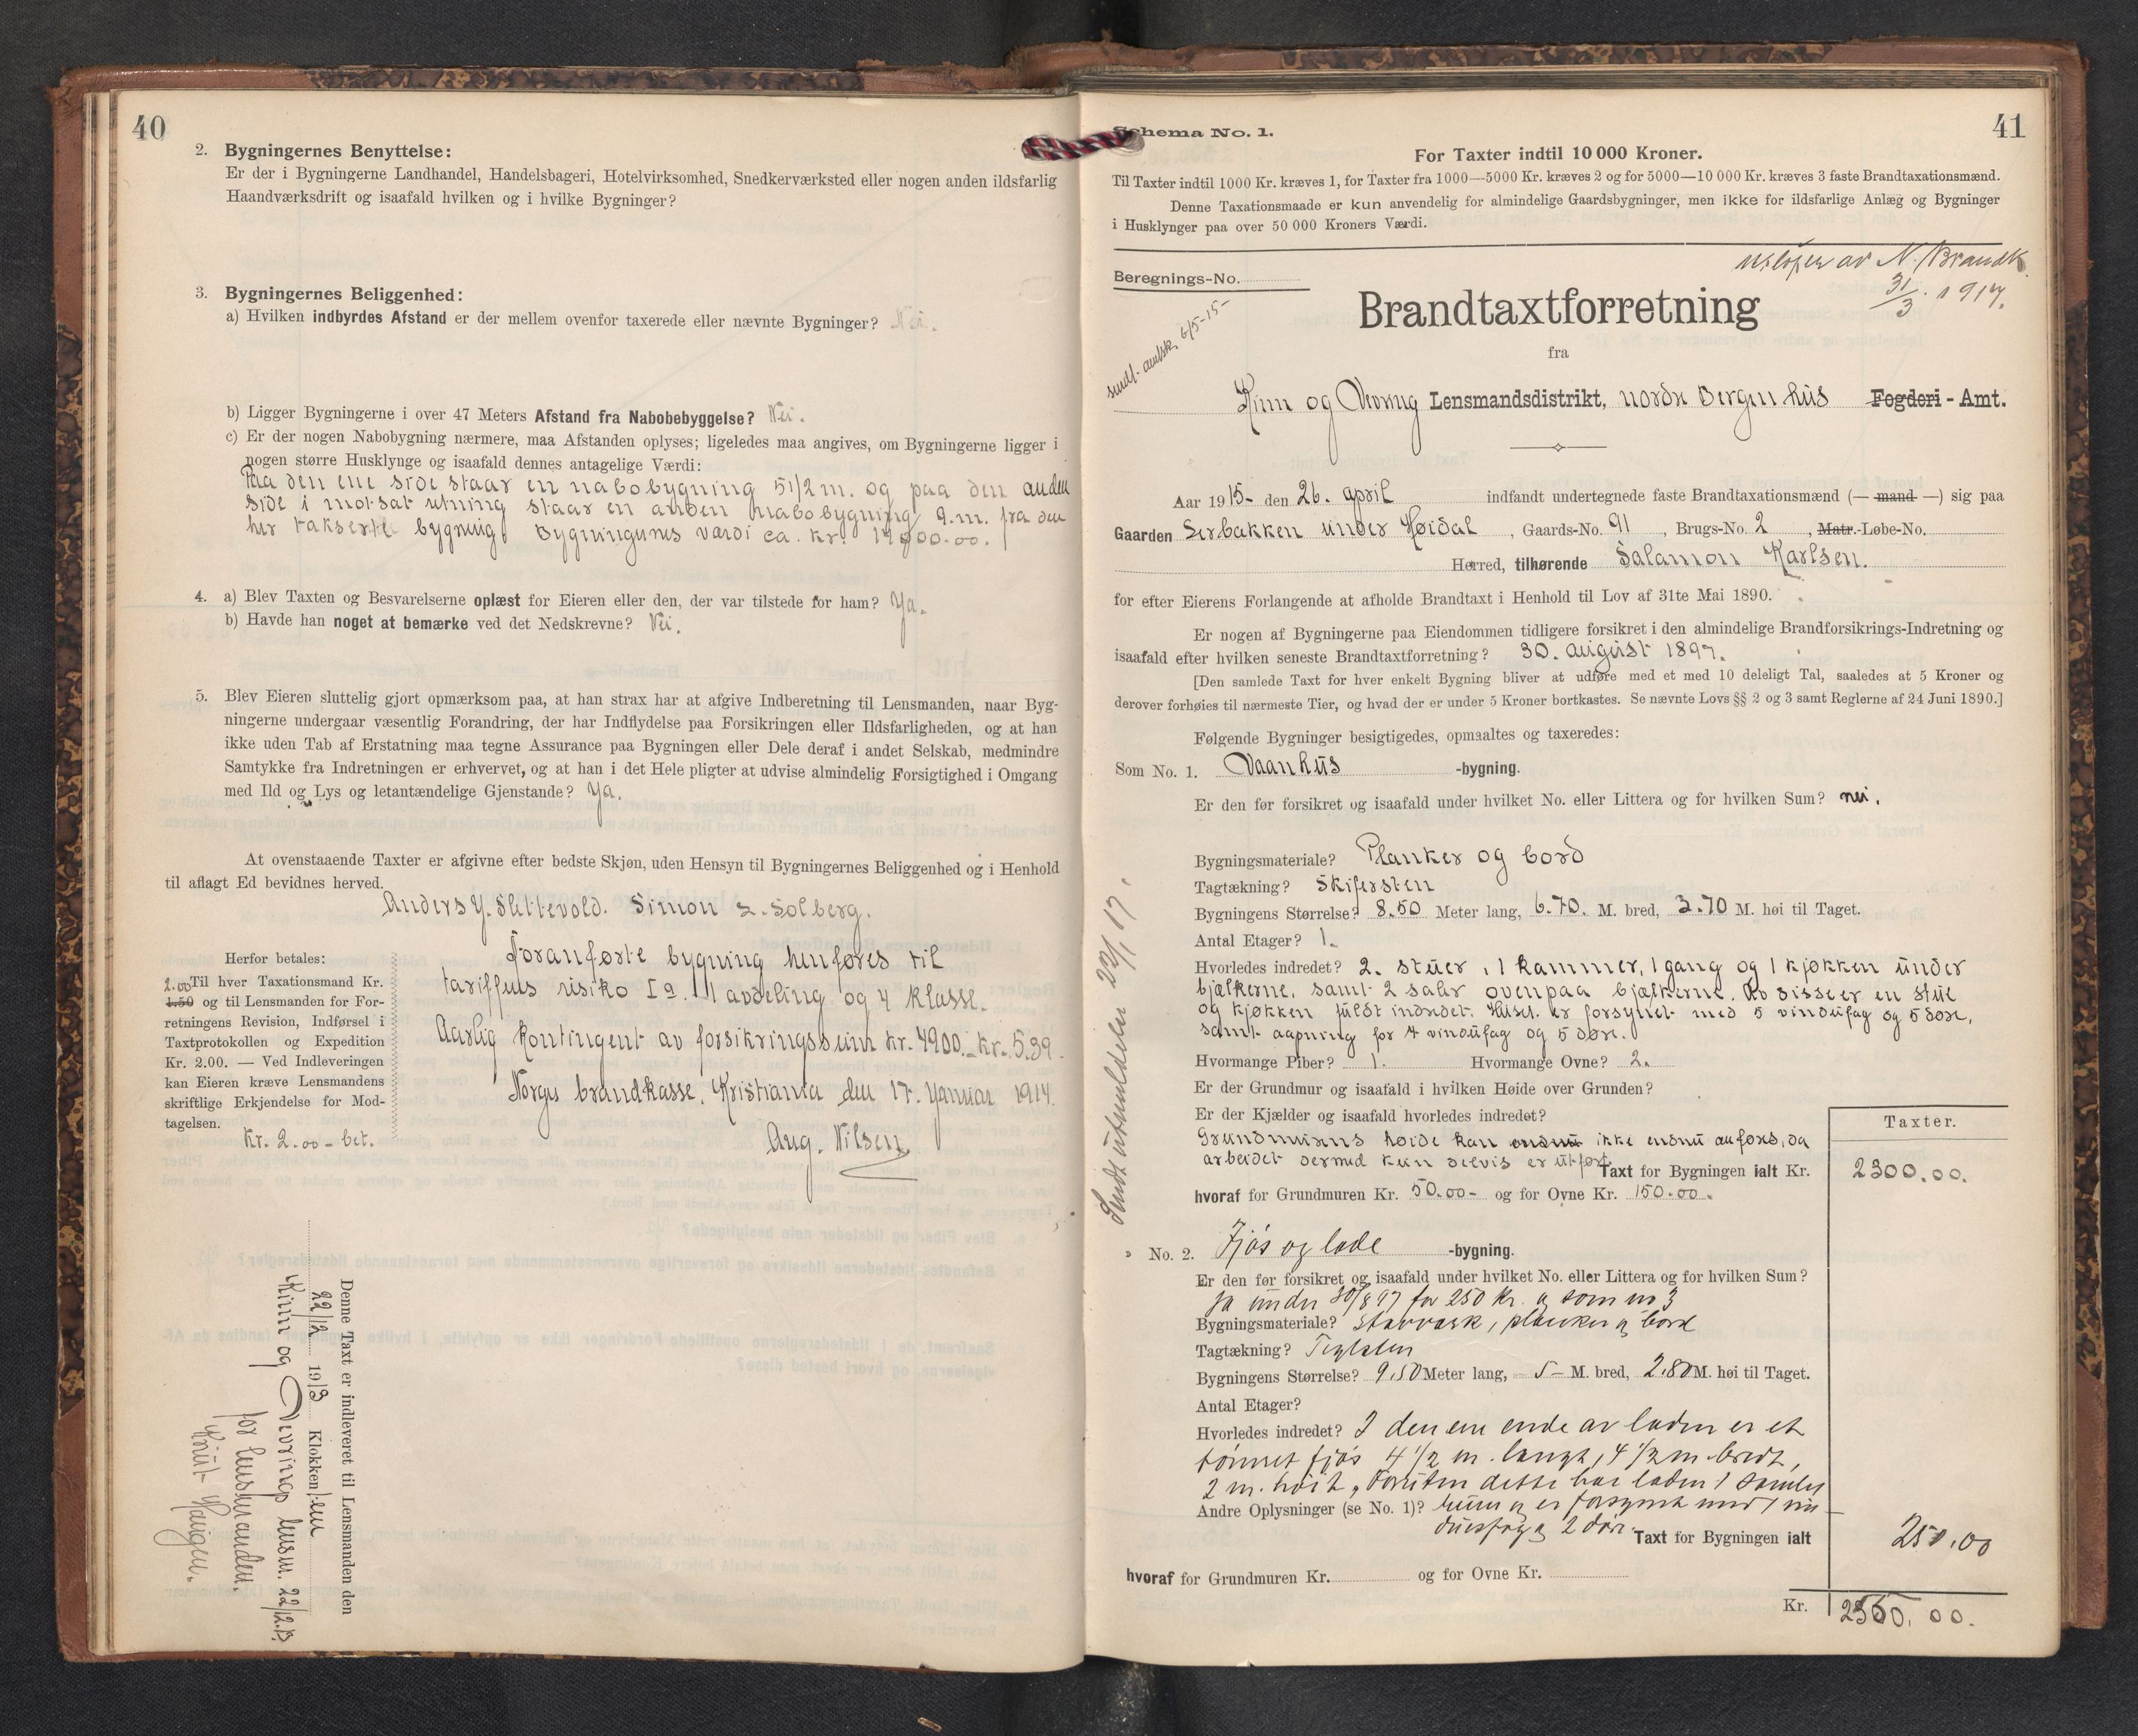 40
2. Bygningernes Benyttelse:
Er der i Bygningerne Landhandel, Handelsbageri, Hotelvirksomhed, Snedkerværksted eller nogen anden ildsfarlig
Haandværksdrift og isaafald hvilken og i hvilke Bygninger?
3. Bygningernes Beliggenhed:
a) Hvilken indbyrdes Afstand er der mellem ovenfor taxerede eller nævnte Bygninger? Nei.
b) Ligger Bygningerne i over 47 Meters Afstand fra Nabobebyggelse? Nei.
c) Er der nogen Nabobygning nærmere, maa Afstanden oplyses; ligeledes maa angives, om Bygningerne ligger i
nogen større Husklynge og isaafald dennes antagelige Værdi:
Paa den ene side staar en nabobygning 5 1/2 m. og paa den anden
side i motsat retning staar en anden nabobygning 9.m. fra den
her takserte bygning. Bygningenes værdi ca. kr.
4. a) Blev Taxten og Besvarelserne oplæst for Eieren eller den, der var tilstede for ham? Ja.
b) Havde han noget at bemærke ved det Nedskrevne? Nei.
5. Blev Eieren sluttelig gjort opmærksom paa, at han strax har at afgive Indberetning til Lensmanden, naar Byg-
ningerne undergaar væsentlig Forandring, der har Indflydelse paa Forsikringen eller Ildsfarligheden, og at han
ikke uden Tab af Erstatning maa tegne Assurance paa Bygningen eller Dele deraf i andet Selskab, medmindre
Samtykke fra Indretningen er erhvervet, og at han i det Hele pligter at udvise almindelig Forsigtighed i Omgang
med Ild og Lys og letantændelige Gjenstande? Ja.
At ovenstaaende Taxter er afgivne efter bedste Skjøn, uden Hensyn til Bygningernes Beliggenhed og i Henhold
til aflagt Ed bevidnes herved.
Anders J. Slettevold. Simon L. Solberg.
Herfor betales:
2.00 Til hver Taxationsmand Kr.
1.50 og til Lensmanden for For-
retningens Revision, Indførsel i
Taxtprotokollen og Expedition
Kr. 2.00. — Ved Indleveringen
kan Eieren kræve Lensmandens
skriftlige Erkjendelse for Mod-
tagelsen.
Kr. 2.00 - bet.
Foranførte bygning henføres til
tariffens risiko I a. 1 avdeling og 4 klasse.
Aarlig kontingent av forsikringssum kr. 4900.- kr. 5.39.
Norges brandkasse, Kristiania den 17. Januar 1914.
Aug. Nilsen
Denne Taxt er indleveret til Lensmanden den
22/12 1913 Klokken 1 em
Kinn og Bevring lensm. 22/12.13
for lensmanden.
Knut Haugen.
41
Schema No. 1.
For Taxter indtil 10 000 Kroner.
Til Taxter indtil 1000 Kr. kræves 1, for Taxter fra 1000—5000 Kr. kræves 2 og for 5000—10 000 Kr. kræves 3 faste Brandtaxationsmænd.
Denne Taxationsmaade er kun anvendelig for almindelige Gaardsbygninger, men ikke for ildsfarlige Anlæg og Bygninger
i Husklynger paa over 50 000 Kroners Værdi.
av N. Brandk.
31/3 1917.
Beregnings-No.
sendt amtsk. 6/5-15-
Brandtaxtforretning
fra
Kinn og Bevring Lensmandsdistrikt, nordre Bergenhus Fogderi - Amt.
Aar 1915- den 26. april indfandt undertegnede faste Brandtaxationsmænd (— mand —) sig paa
Gaarden Serbakken under Høidal, Gaards-No. 91, Brugs-No. 2, Matr.-Løbe-No.
Herred, tilhørende Salamon Karlsen.
for efter Eierens Forlangende at afholde Brandtaxt i Henhold til Lov af 31te Mai 1890.
Er nogen af Bygningerne paa Eiendommen tidligere forsikret i den almindelige Brandforsikrings-Indretning og
isaafald efter hvilken seneste Brandtaxtforretning? 30. august 1897.
[Den samlede Taxt for hver enkelt Bygning bliver at udføre med et med 10 deleligt Tal, saaledes at 5 Kroner og
derover forhøies til nærmeste Tier, og hvad der er under 5 Kroner bortkastes. Se nævnte Lovs §§ 2 og 3 samt Reglerne af 24 Juni 1890.]
Følgende Bygninger besigtigedes, opmaaltes og taxeredes:
Som No. 1. Vaanhus -bygning.
Er den før forsikret og isaafald under hvilket No. eller Littera og for hvilken Sum? nei.
Bygningsmateriale? Planker og bord
Tagtækning? Skifersten
Bygningens Størrelse? 8.50 Meter lang, 6.70. M. bred, 3.70 M. høi til Taget.
Antal Etager? 1.
Hvorledes indredet? 2. stuer, 1 kammer, 1 gang og 1 kjøkken under
bjelkerne, samt 2 saler ovenpaa bjelkerne. Av disse er en stue
og kjøkken fuldt indredet. Huset er forsynet med 5 vindufag og 5 døre,
samt aapning for 4 vindufag og 5 døre.
Hvormange Piber? 1. Hvormange Ovne? 2.
Er der Grundmur og isaafald i hvilken Høide over Grunden?
Er der Kjælder og isaafald hvorledes indredet?
Grundmurens høide kan endnu ikke endnu anføres, da
arbeidet dermed kun delvis er utført.
Taxter.
Taxt for Bygningen ialt Kr. 2300.00.
hvoraf for Grundmuren Kr. 50.00- og for Ovne Kr. 150.00.
Sendt 22/1 17.
" No. 2. Fjøs og lade -bygning.
Er den før forsikret og isaafald under hvilket No. eller Littera og for hvilken Sum?
Ja under 30/8 97 for 250 kr. og som no 3
Bygningsmateriale? Stavværk, planker og bord
Tagtækning? Teglsten
Bygningens Størrelse? 9.50 Meter lang, 5- M. bred, 2.80 M. høi til Taget.
Antal Etager?
Hvorledes indredet? I den ene ende av laden er et
tømret fjøs 4 1/2 m. langt, 4 1/2 m. bredt,
2 m. høit, Foruten dette har laden 1 særlig
Andre Oplysninger (se No. 1)? rum og er forsynt med 1 vin-
duesfag og 2 døre.
Taxt for Bygningen ialt 250.00
hvoraf for Grundmuren Kr. og for Ovne Kr.
Kr. 2550.00.